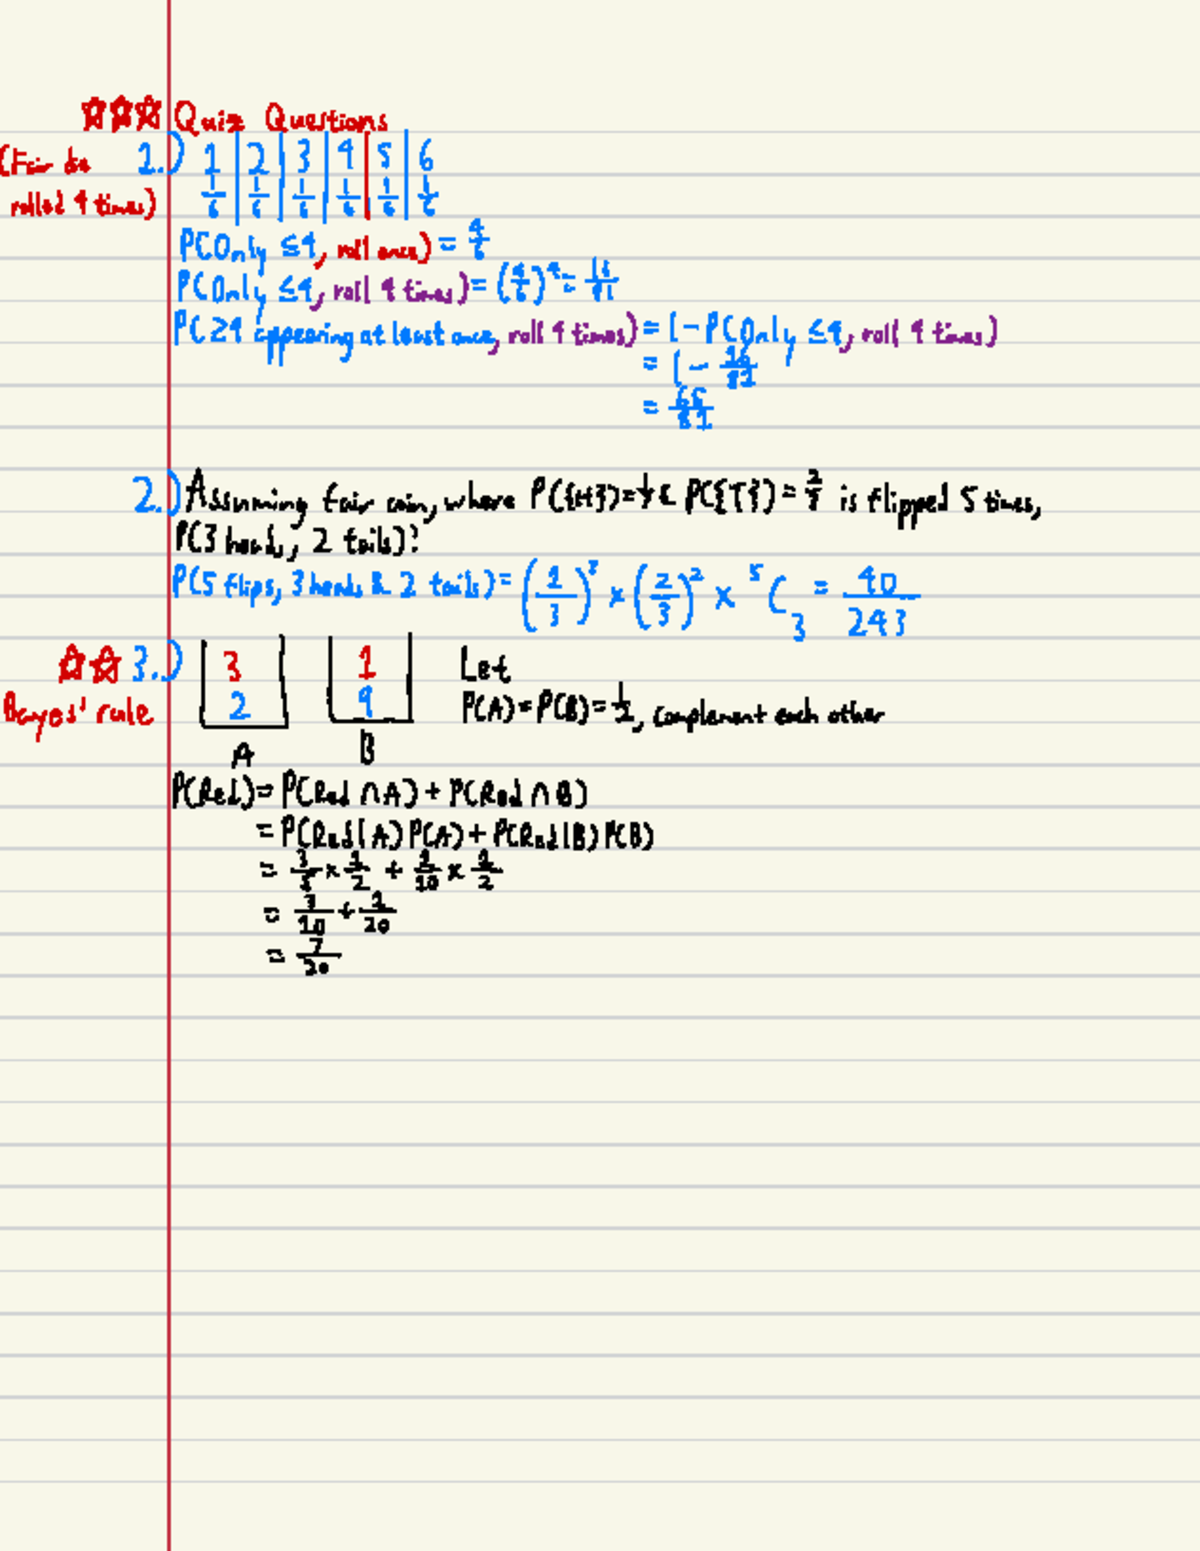 Quiz Questions
(Fair die rolled 4 times)
1.) 1 | 2 | 3 | 4 | 5 | 6
1/6 | 1/6 | 1/6 | 1/6 | 1/6 | 1/6
P(Only ≤4, roll once) = 4/6
P(Only ≤4, roll 4 times) = (4/6)^4 = 16/81
P(≥4 appearing at least once, roll 4 times) = 1 - P(Only ≤4, roll 4 times)
= 1 - 16/81
= 65/81
2.) Assuming fair coin, where P({H}) = 1/3 & P({T}) = 2/3 is flipped 5 times,
P(3 heads, 2 tails)?
P(5 flips, 3 heads & 2 tails) = (1/3)^3 × (2/3)^2 × 5C3 = 40/243
3.) 3 1 Let
Bayes' rule 2 9 P(A) = P(B) = 1/2, complement each other
A B
P(Red) = P(Red ∩ A) + P(Red ∩ B)
= P(Red|A) P(A) + P(Red|B) P(B)
= 3/5 × 1/2 + 1/10 × 1/2
= 3/10 + 1/20
= 7/20